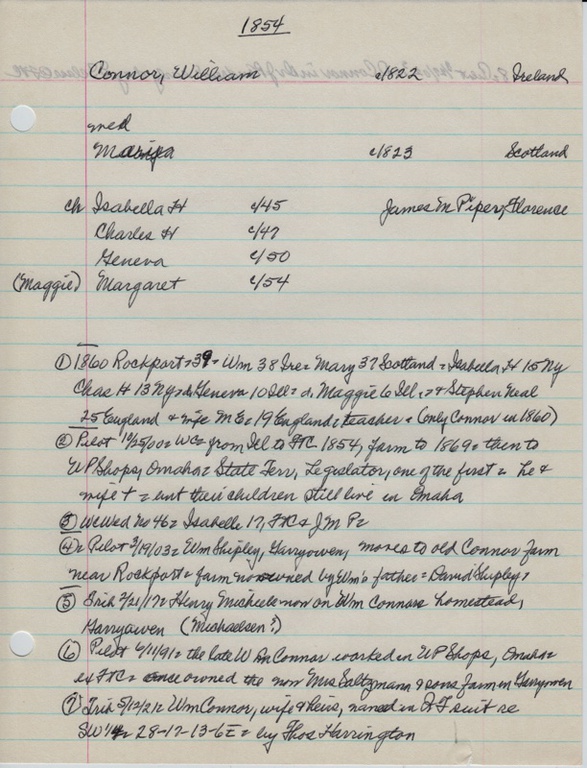 1854
Connor, William c/1822 Ireland
med
c/1823 Scotland
ch Isabella H c/45 James M Piper, Florence
Charles H c/47
Geneva c/50
(Maggie) Margaret c/54
① 1860 Rockport = 39 = Wm 38 Ire = Mary 37 Scotland = Isabella H 15 Ny
Chas H 13 Ny = d. Geneva 10 Ill = d. Maggie 6 Ill, = + Stephen Neal
25 England + wife M E = 19 England = teacher = (only Connor in 1860)
② Pilot = WC = from Ill to FTC 1854, farm to 1869 = then to
UP Shops, Omaha = State Terr, Legislator, one of the first = he +
wife † = but their children still live in Omaha
③ WC Wed no 46 = Isabelle 17, FTC & J M P =
④ = Pilot 3/19/03 = Wm Shipley, Garryowen, moves to old Connor farm
near Rockport = farm now owned by Wm's father = David Shipley =
⑤ Trib 2/21/17 = Henry Michiels now on Wm Connors homestead,
Garryowen (Michaelsen?)
⑥ Pilot 6/11/91 = the late W M Connor worked in UP Shops, Omaha =
ex FTC = owned the now Mrs Saltzmann & sons farm in Garryowen
⑦ Trib 5/12/21 = Wm Connor, wife & heirs, named in Q T suit re
SW 1/4 = 28-17-13-6E = by Thos Harrington